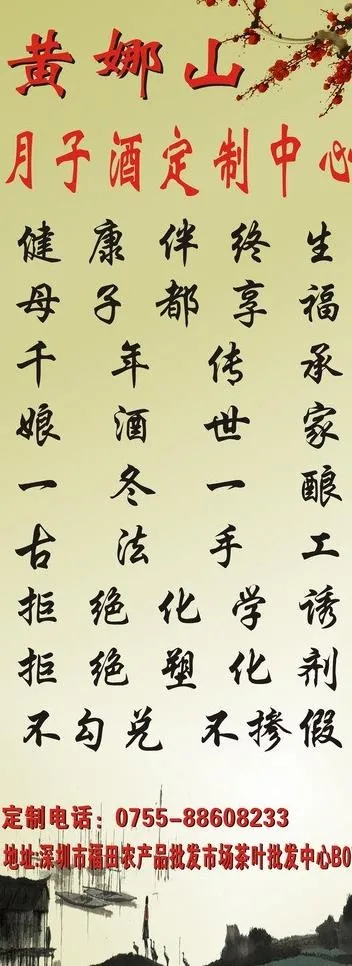 黄娜山
月子酒定制中心
健康伴终生
母子都享福
千年传承
娘酒世家
一冬一酿
古法手工
拒绝化学诱
拒绝塑化剂
不勾兑 不掺假
定制电话：0755-88608233
地址:深圳市福田农产品批发市场茶叶批发中心B0